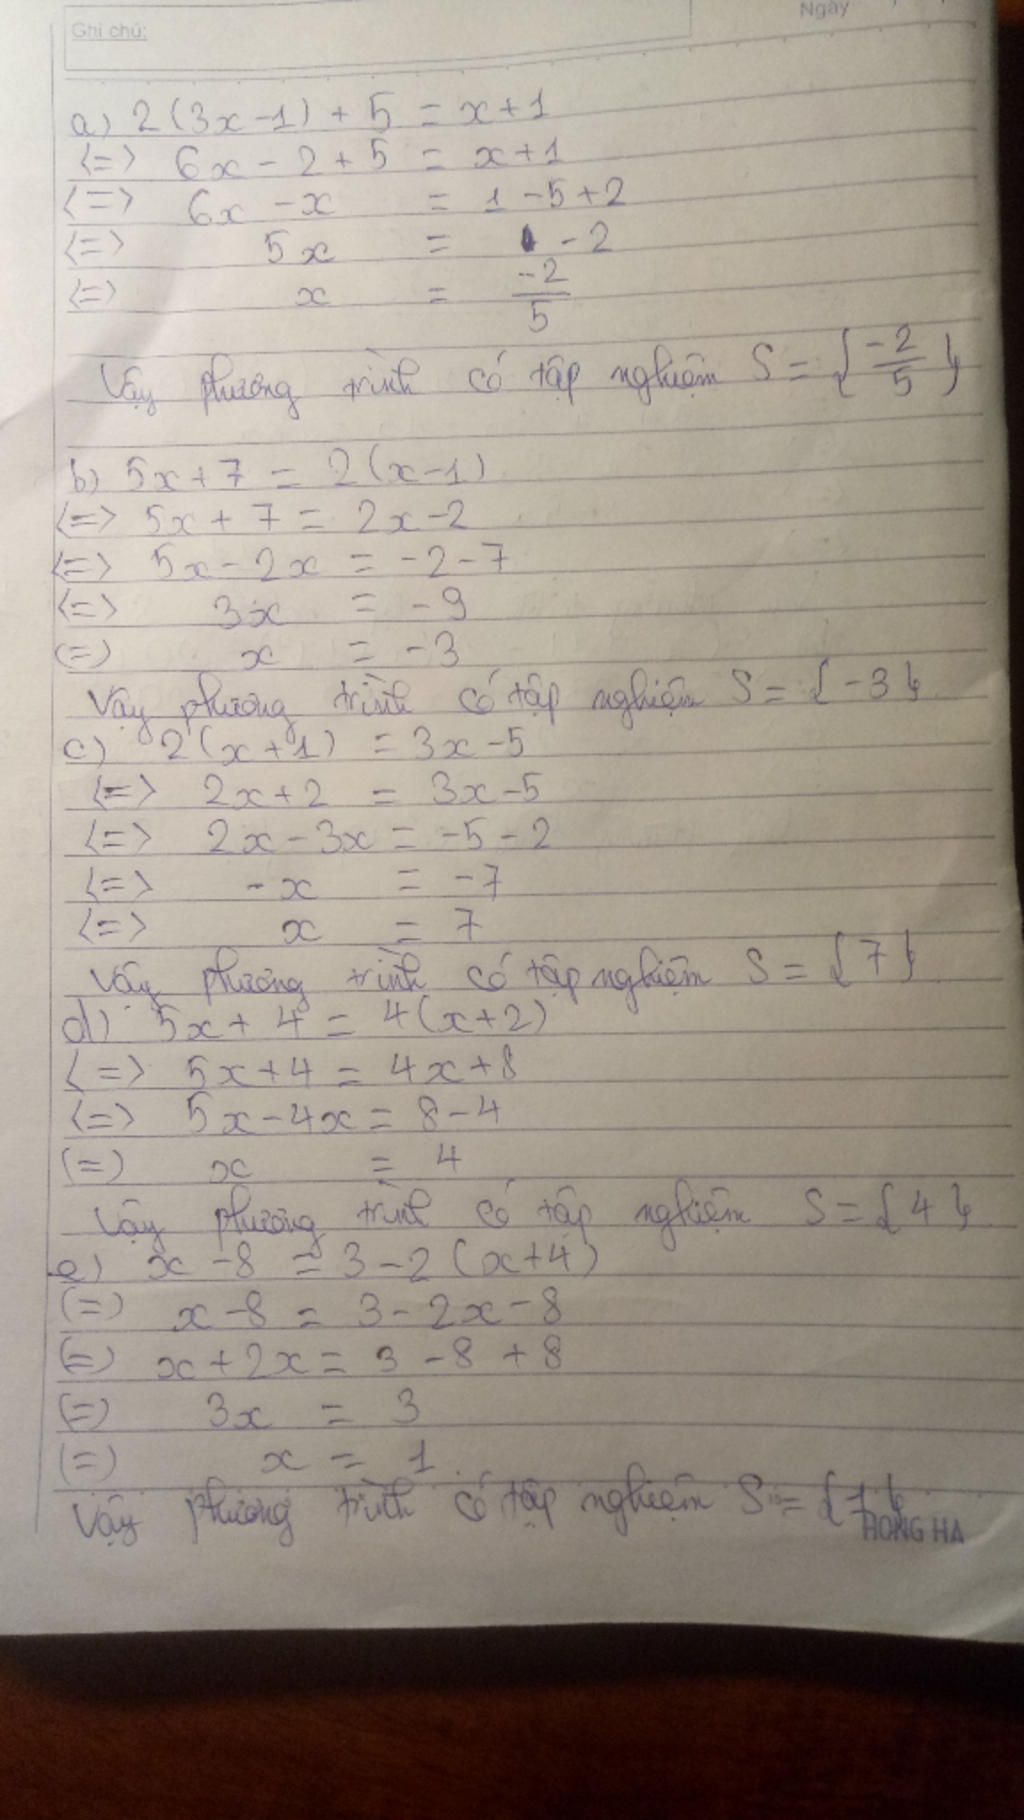 Ghi chú:
Ngày
a) 2(3x-1) + 5 = x+1
<=> 6x - 2 + 5 = x+1
<=> 6x - x = 1 - 5 + 2
<=> 5x = - 2
<=> x = -2/5
Vậy phương trình có tập nghiệm S = {-2/5}
b) 5x + 7 = 2(x-1)
<=> 5x + 7 = 2x - 2
<=> 5x - 2x = -2 - 7
<=> 3x = -9
(=) x = -3
Vậy phương trình có tập nghiệm S = {-3}.
c) 2(x+1) = 3x - 5
<=> 2x + 2 = 3x - 5
<=> 2x - 3x = -5 - 2
<=> -x = -7
<=> x = 7
Vậy phương trình có tập nghiệm S = {7}.
d) 5x + 4 = 4(x+2)
<=> 5x + 4 = 4x + 8
<=> 5x - 4x = 8 - 4
(=) x = 4
Vậy phương trình có tập nghiệm S = {4}.
e) x - 8 = 3 - 2(x+4)
(=) x - 8 = 3 - 2x - 8
(=) x + 2x = 3 - 8 + 8
(=) 3x = 3
(=) x = 1.
Vậy phương trình có tập nghiệm S = {1}
HONG HA